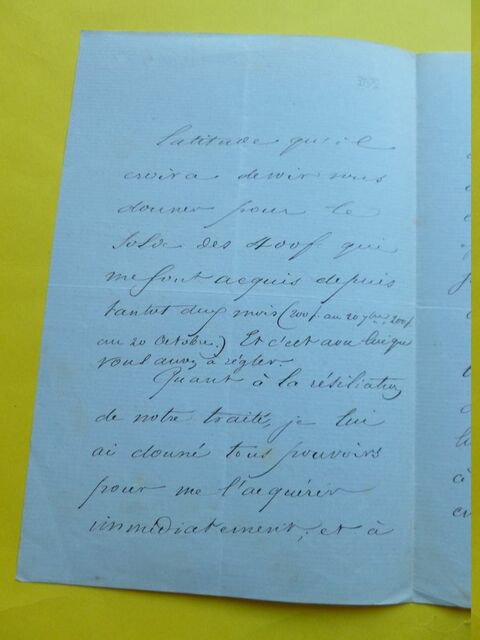 latitude qu'il
croira devoir vous
donner pour le
solde des 400f qui
me sont acquis depuis
tantot deux mois (200f. au 20 7bre, 200f
au 20 Octobre.) Et c'est avec lui que
vous aurez à régler.
Quant à la résiliation
de notre traité, je lui
ai donné tous pouvoirs
pour me l'acquérir
immédiatement, et à